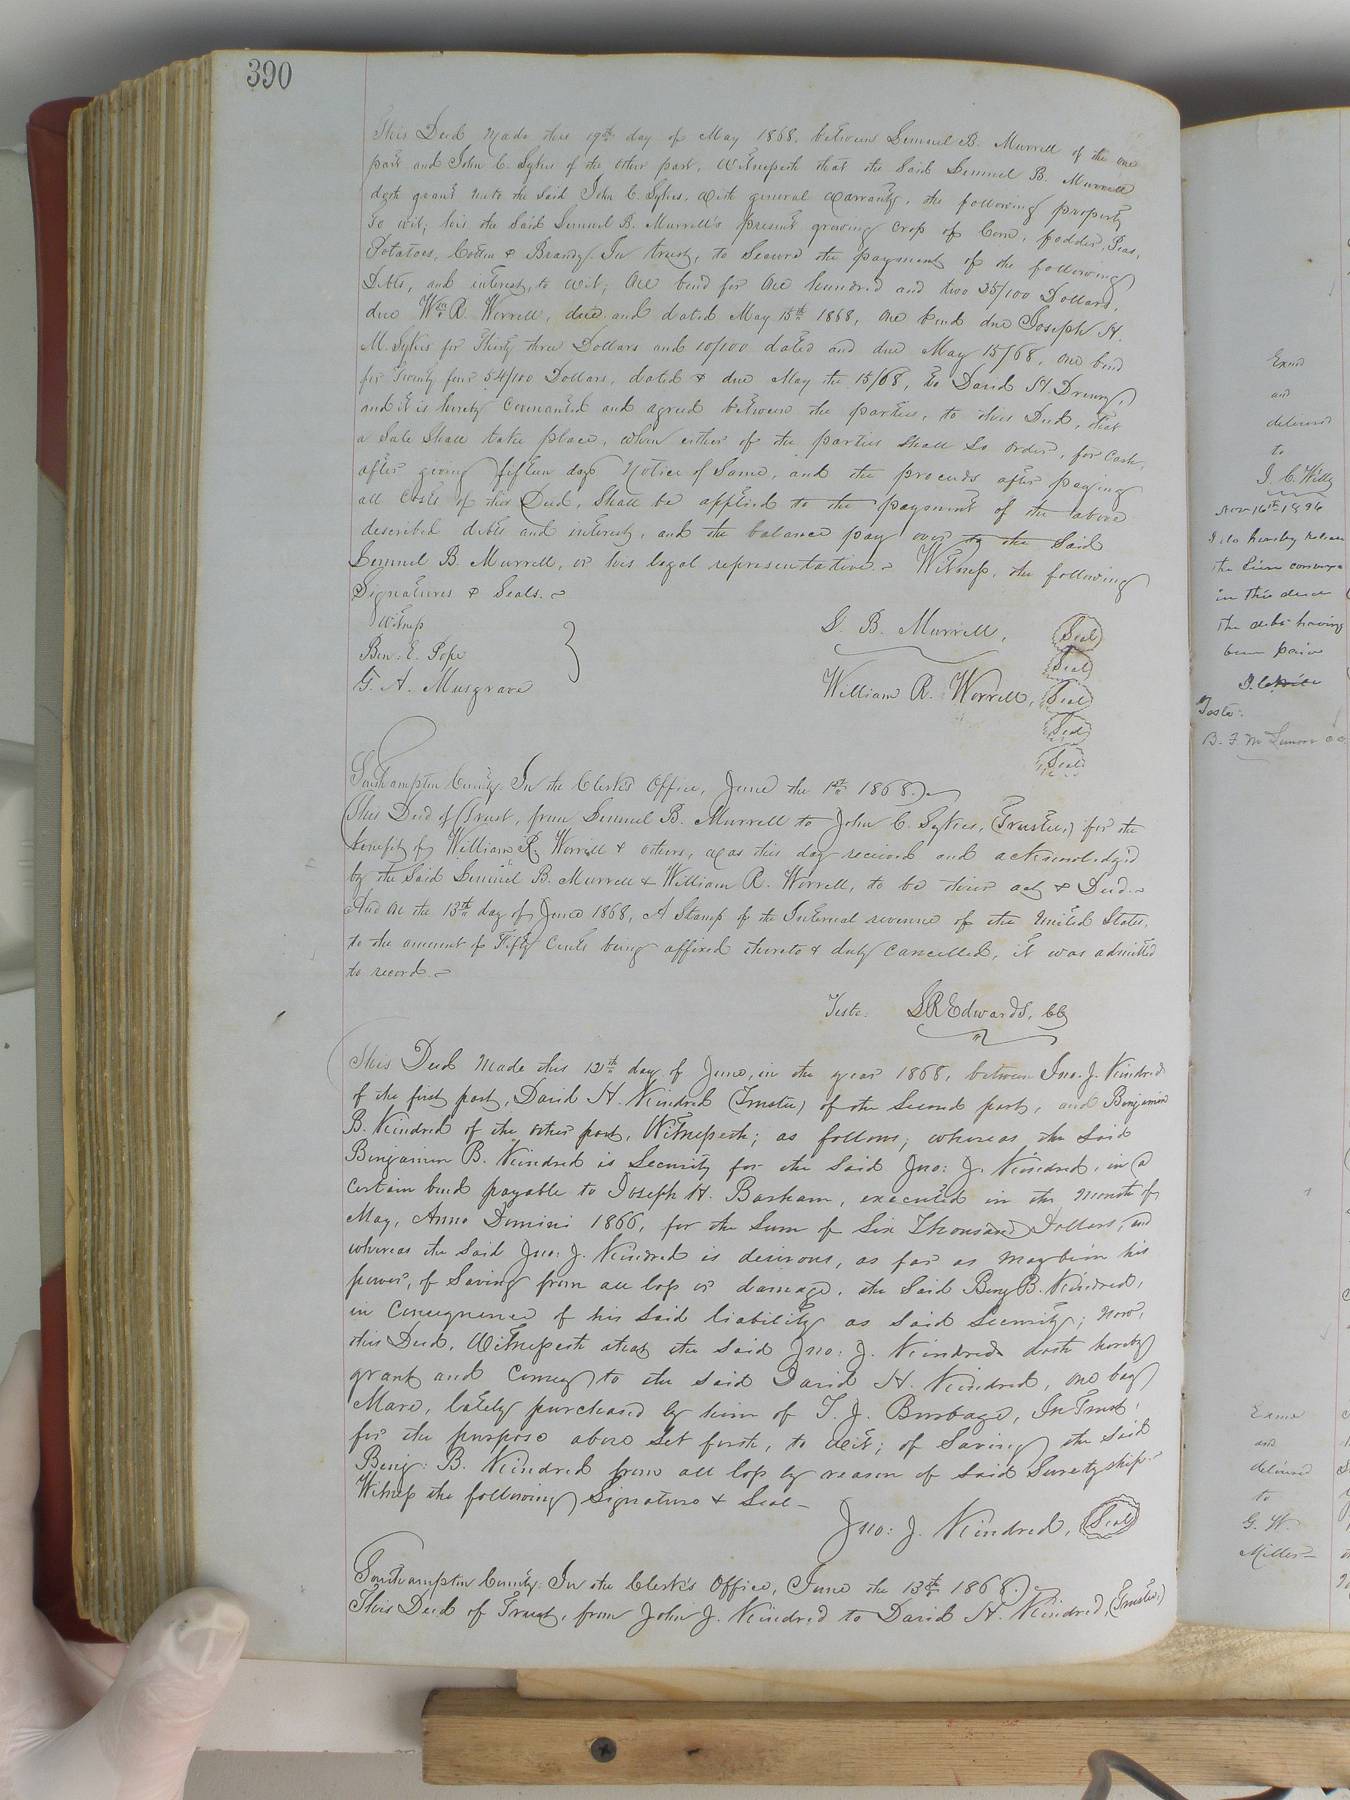 390
This Deed made this 19th day of May 1868, between Lemuel B. Murrell of the one
part and John C. Sykes of the other part, Witnesseth that the said Lemuel B. Murrell
doth grant unto the said John C. Sykes, with general warranty, the following property
to wit; his the said Lemuel B. Murrell's present growing crop of Corn, fodder, Peas,
Potatoes, Cotton & Brandy. In trust, to secure the payment of the following
Debts, and interest, to wit; one bond for one hundred and two 35/100 Dollars,
due Wm R. Worrell, due and dated May 15th 1868, one bond due Joseph H.
M. Sykes for Thirty three Dollars and 10/100 dated and due May 15/68, one bond
for Twenty four 54/100 Dollars, dated & due May the 15/68, to David H. Drewry,
and it is hereby covenanted and agreed between the parties, to this Deed, that
a sale shall take place, when either of the parties shall so order, for cash,
after giving fifteen days notice of same, and the proceeds after paying
all costs of this Deed, shall be applied to the payment of the above
described debts and interest, and the balance pay over to the said
Lemuel B. Murrell, or his legal representative. Witness, the following
Signatures & Seals.
Witness
Ben. E. Pope
G. A. Musgrave
L. B. Murrell, Seal
Seal
William R. Worrell, Seal
Seal
Seal
Southampton County. In the Clerk's Office, June the 1st 1868.
This Deed of Trust, from Lemuel B. Murrell to John C. Sykes, (Trustee,) for the
benefit of William R. Worrell & others, was this day received and acknowledged
by the said Lemuel B. Murrell & William R. Worrell, to be their act & Deed.
And on the 13th day of June 1868, A Stamp of the Internal revenue of the United States,
to the amount of Fifty Cents being affixed thereto & duly cancelled, it was admitted
to record.
Teste. LR Edwards, CC
This Deed made this 12th day of June, in the year 1868, between Jno. J. Kindred
of the first part, David H. Kindred (Trustee) of the second part, and Benjamin
B. Kindred of the other part, Witnesseth; as follows; whereas the said
Benjamin B. Kindred is security for the said Jno: J. Kindred, in a
certain bond payable to Joseph H. Barham, executed in the month of
May, Anno Domini 1866, for the sum of Six Thousand Dollars, and
whereas the said Jno: J. Kindred is desirous, as far as may be in his
power, of saving from all loss or damage, the said Benj B. Kindred,
in consequence of his said liability as said security; now,
this Deed, Witnesseth that the said Jno: J. Kindred doth hereby
grant and convey to the said David H. Kindred, one bay
Mare, lately purchased by him of T. J. Burbage, In Trust,
for the purpose above set forth, to wit; of saving the said
Benj: B. Kindred from all loss by reason of said Suretyship.
Witness the following signature & Seal
Jno: J. Kindred, Seal
Southampton County. In the Clerk's Office, June the 13th 1868.
This Deed of Trust, from John J. Kindred to David H. Kindred, (Trustee,)
Examd
and
delivered
to
J. C. Willy
Nov 16th 1896
I do hereby release
the lien conveyed
in this deed
the debt having
been paid
Teste:
Examd
and
delivered
to
G. W.
Miller